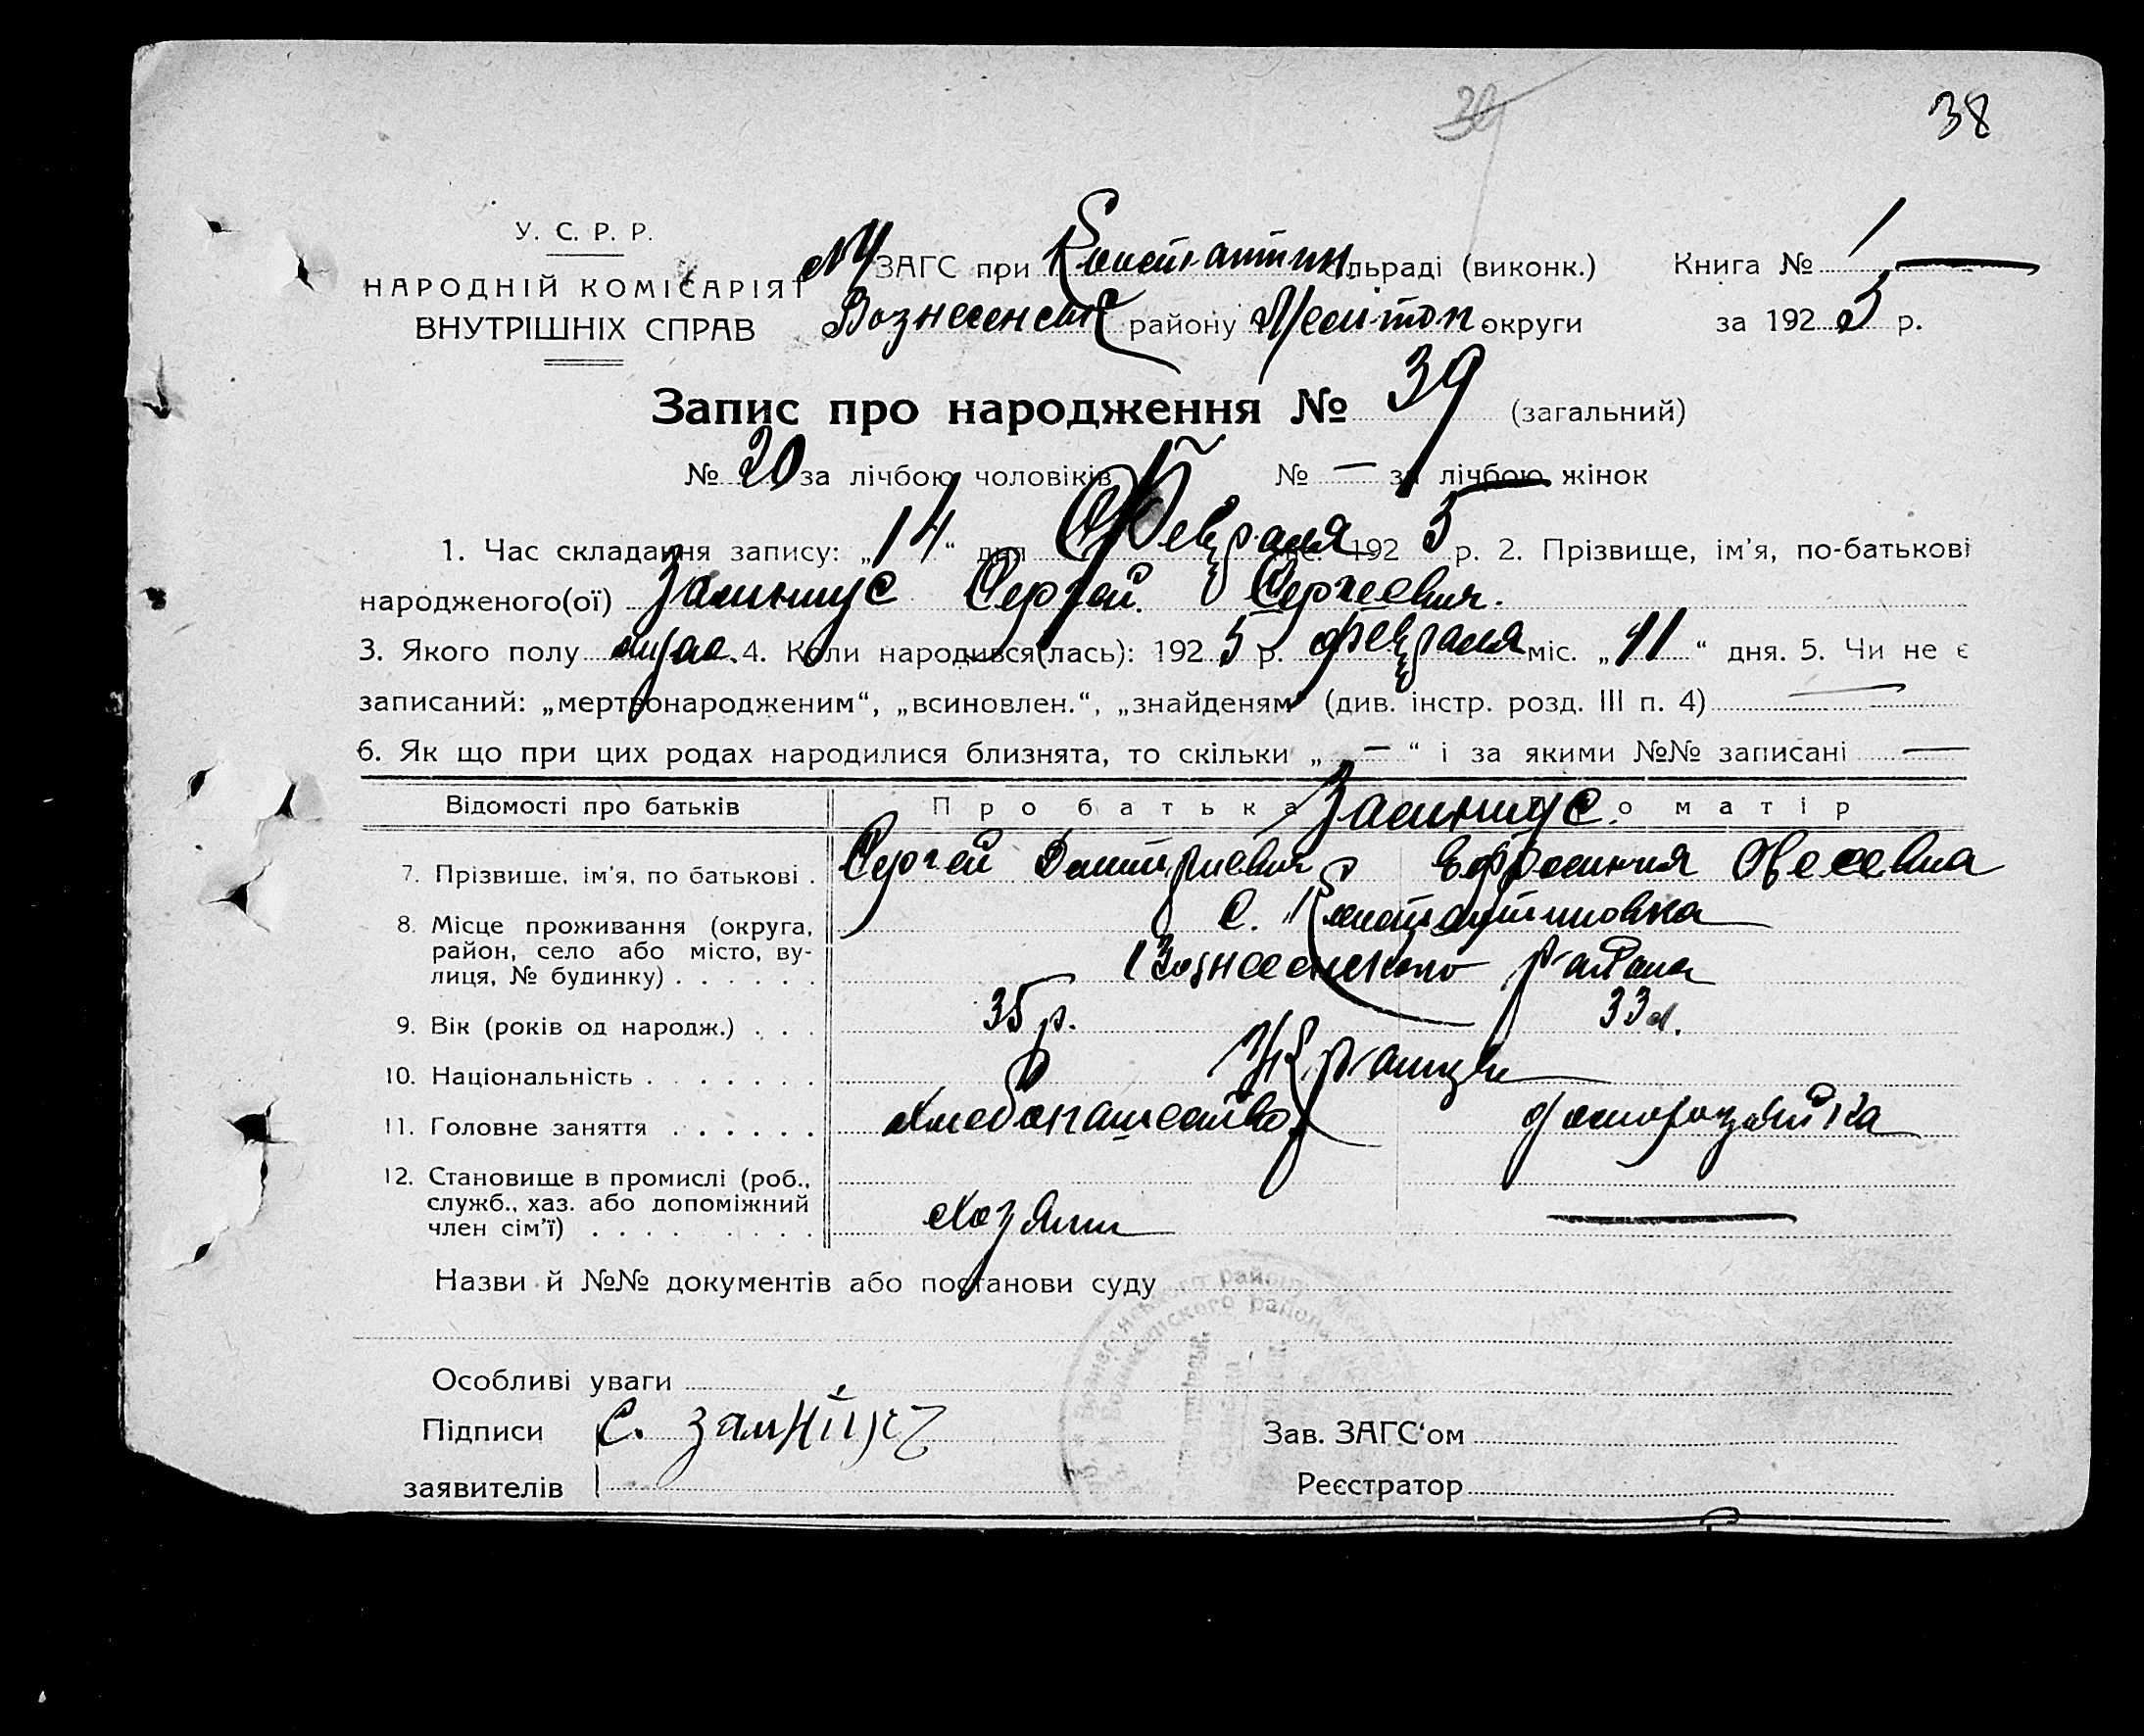 39
38
У. С. Р. Р.
НАРОДНІЙ КОМІСАРІЯТ
ВНУТРІШНІХ СПРАВ
ЗАГС при Константин. сільраді (виконк.) Книга № 1
Вознесенськ району округи за 1925 р.
Запис про народження № 39 (загальний)
№ 20 за лічбою чоловіків № — за лічбою жінок
1. Час складання запису: „14“ дня Февраля міс. 1925 р. 2. Прізвище, ім'я, по-батькові
народженого(ої) Сергей Сергеевич.
3. Якого полу муж. 4. Коли народився(лась): 1925 р. февраля міс. „11“ дня. 5. Чи не є
записаний: „мертвонародженим“, „всиновлен.“, „знайденям“ (див. інстр. розд. III п. 4) —
6. Як що при цих родах народилися близнята, то скільки „—“ і за якими №№ записані —
Відомості про батьків Про батька Про матір
7. Прізвище, ім'я, по батькові . Сергей Дмитриевич Ефросиния
8. Місце проживання (округа, район, село або місто, ву-
лиця, № будинку) . . . . . . с. Константиновка
Вознесенского района
9. Вік (років од народж.) . . . 35 р. 33 л.
10. Національність . . . . . . . Украинцы
11. Головне заняття . . . . . . Хлебопашество домохозяйка
12. Становище в промислі (роб.,
служб., хаз. або допоміжний
член сім'ї) . . . . . . . . Хозяин —
Назви й №№ документів або постанови суду
Особливі уваги
Підписи С. Зал Зав. ЗАГС'ом
заявителів Реєстратор